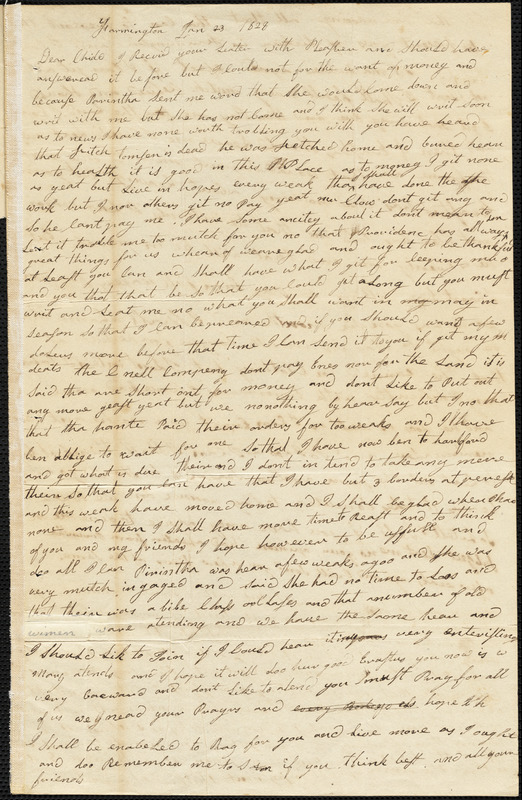 Farmington Jan 23 1828
Dear Child I Recvd your Letter with Pleasure and Should have
answered it before but I Could not for the want of money and
becaus Parintha Sent me word that She would Come down and
writ with me but She has not Come and I think She will writ Soon
as to news I have none worth trobling you with you have heard
that Fitch is dead he was fetched home and buried hear
as to health it is good in this Place as to money I git none
as yeat but Live in hopes every weak that I shall have done the
work but I nor others git no Pay yeat mr Clow dont git any and
So he Cant pay me I have Some ancity about it dont mean to
Let it trouble me too mutch for you no that Providence has always don
great things for us wheareof weare glad and ought to be thankful
at Least you Can and Shall have what I git for
and you that that be So that you Could git along but you must
writ and Leat me no what you Shall want in may in
Season So that I Can be and if you Should want a few
dolers more before that time I Can Send it to you if I git my
deats the Cnell Compeny dont pay bnes nor for the Land it is
Said tha are Short ont for money and dont Like to Put out
any more yeast yeat but we no nothing by hear Say but I no that
that tha hante Paid their orders for too weaks and I have
ben ablige to wait for one So that I have now ben to hartford
and got what is due their and I dont in tend to take any more
theirs So that you Can have that I have but 3 borders at present
and this weak have moved home and I Shall be glad when I have
none and then I Shall have more time to Reast and to think
of you and my friends I hope however to be usfull and
do all I Can Pirintha was hear a few weaks agoo and She was
very mutch ingaged and Said She had no time to Loos and
that their was a bible Class of Ladys and that a number of old
women ware atending and we have the Same hear and
I Should Lik to Join if I Could hear it is very intevisting
many atends and I hope it will doo hur good Erastus you now is
very backward and dont Like to atend you must Pray for all
of us we need your Prayrs and hope th
I Shall be enabeled to Pray for you and Live more as I ought
and doo Remember me to if you think best and all your
friends